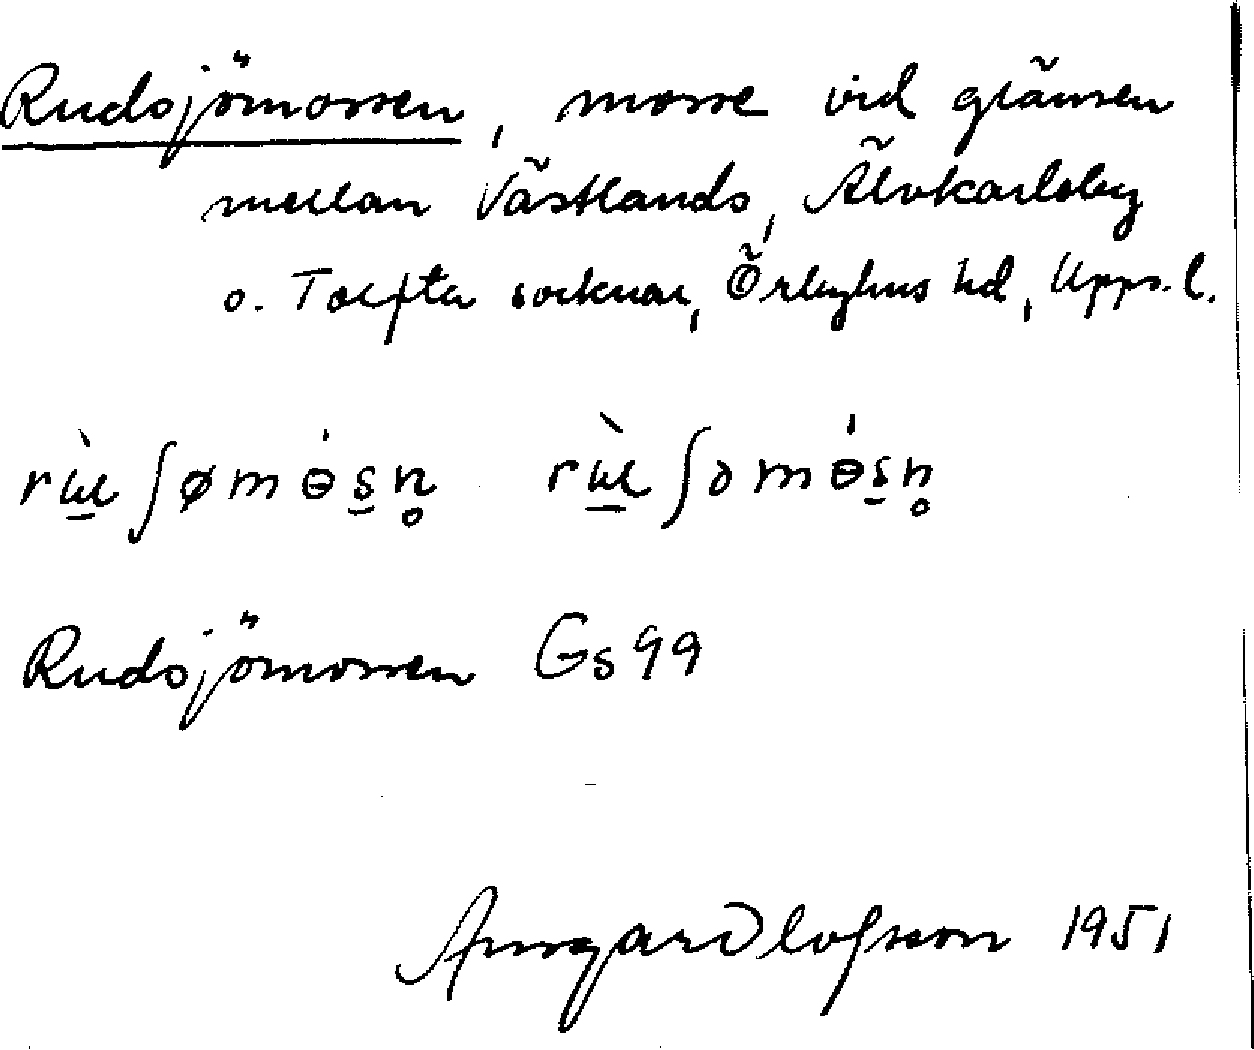 Rudsjömossen, mosse vid gränsen
mellan Västlands, Älvkarleby
o. Tolfta socknar, Örbyhus hd, Upps. l.
rɯ̀ʃømɵ́s̠n̥ rɯ̀ʃəmɵ́s̠n̥
Rudsjömossen Gs 99
Ansgar Olofsson 1951